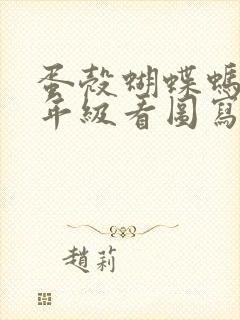 蛋殼蝴蝶螞
年級看圖寫
趙莉